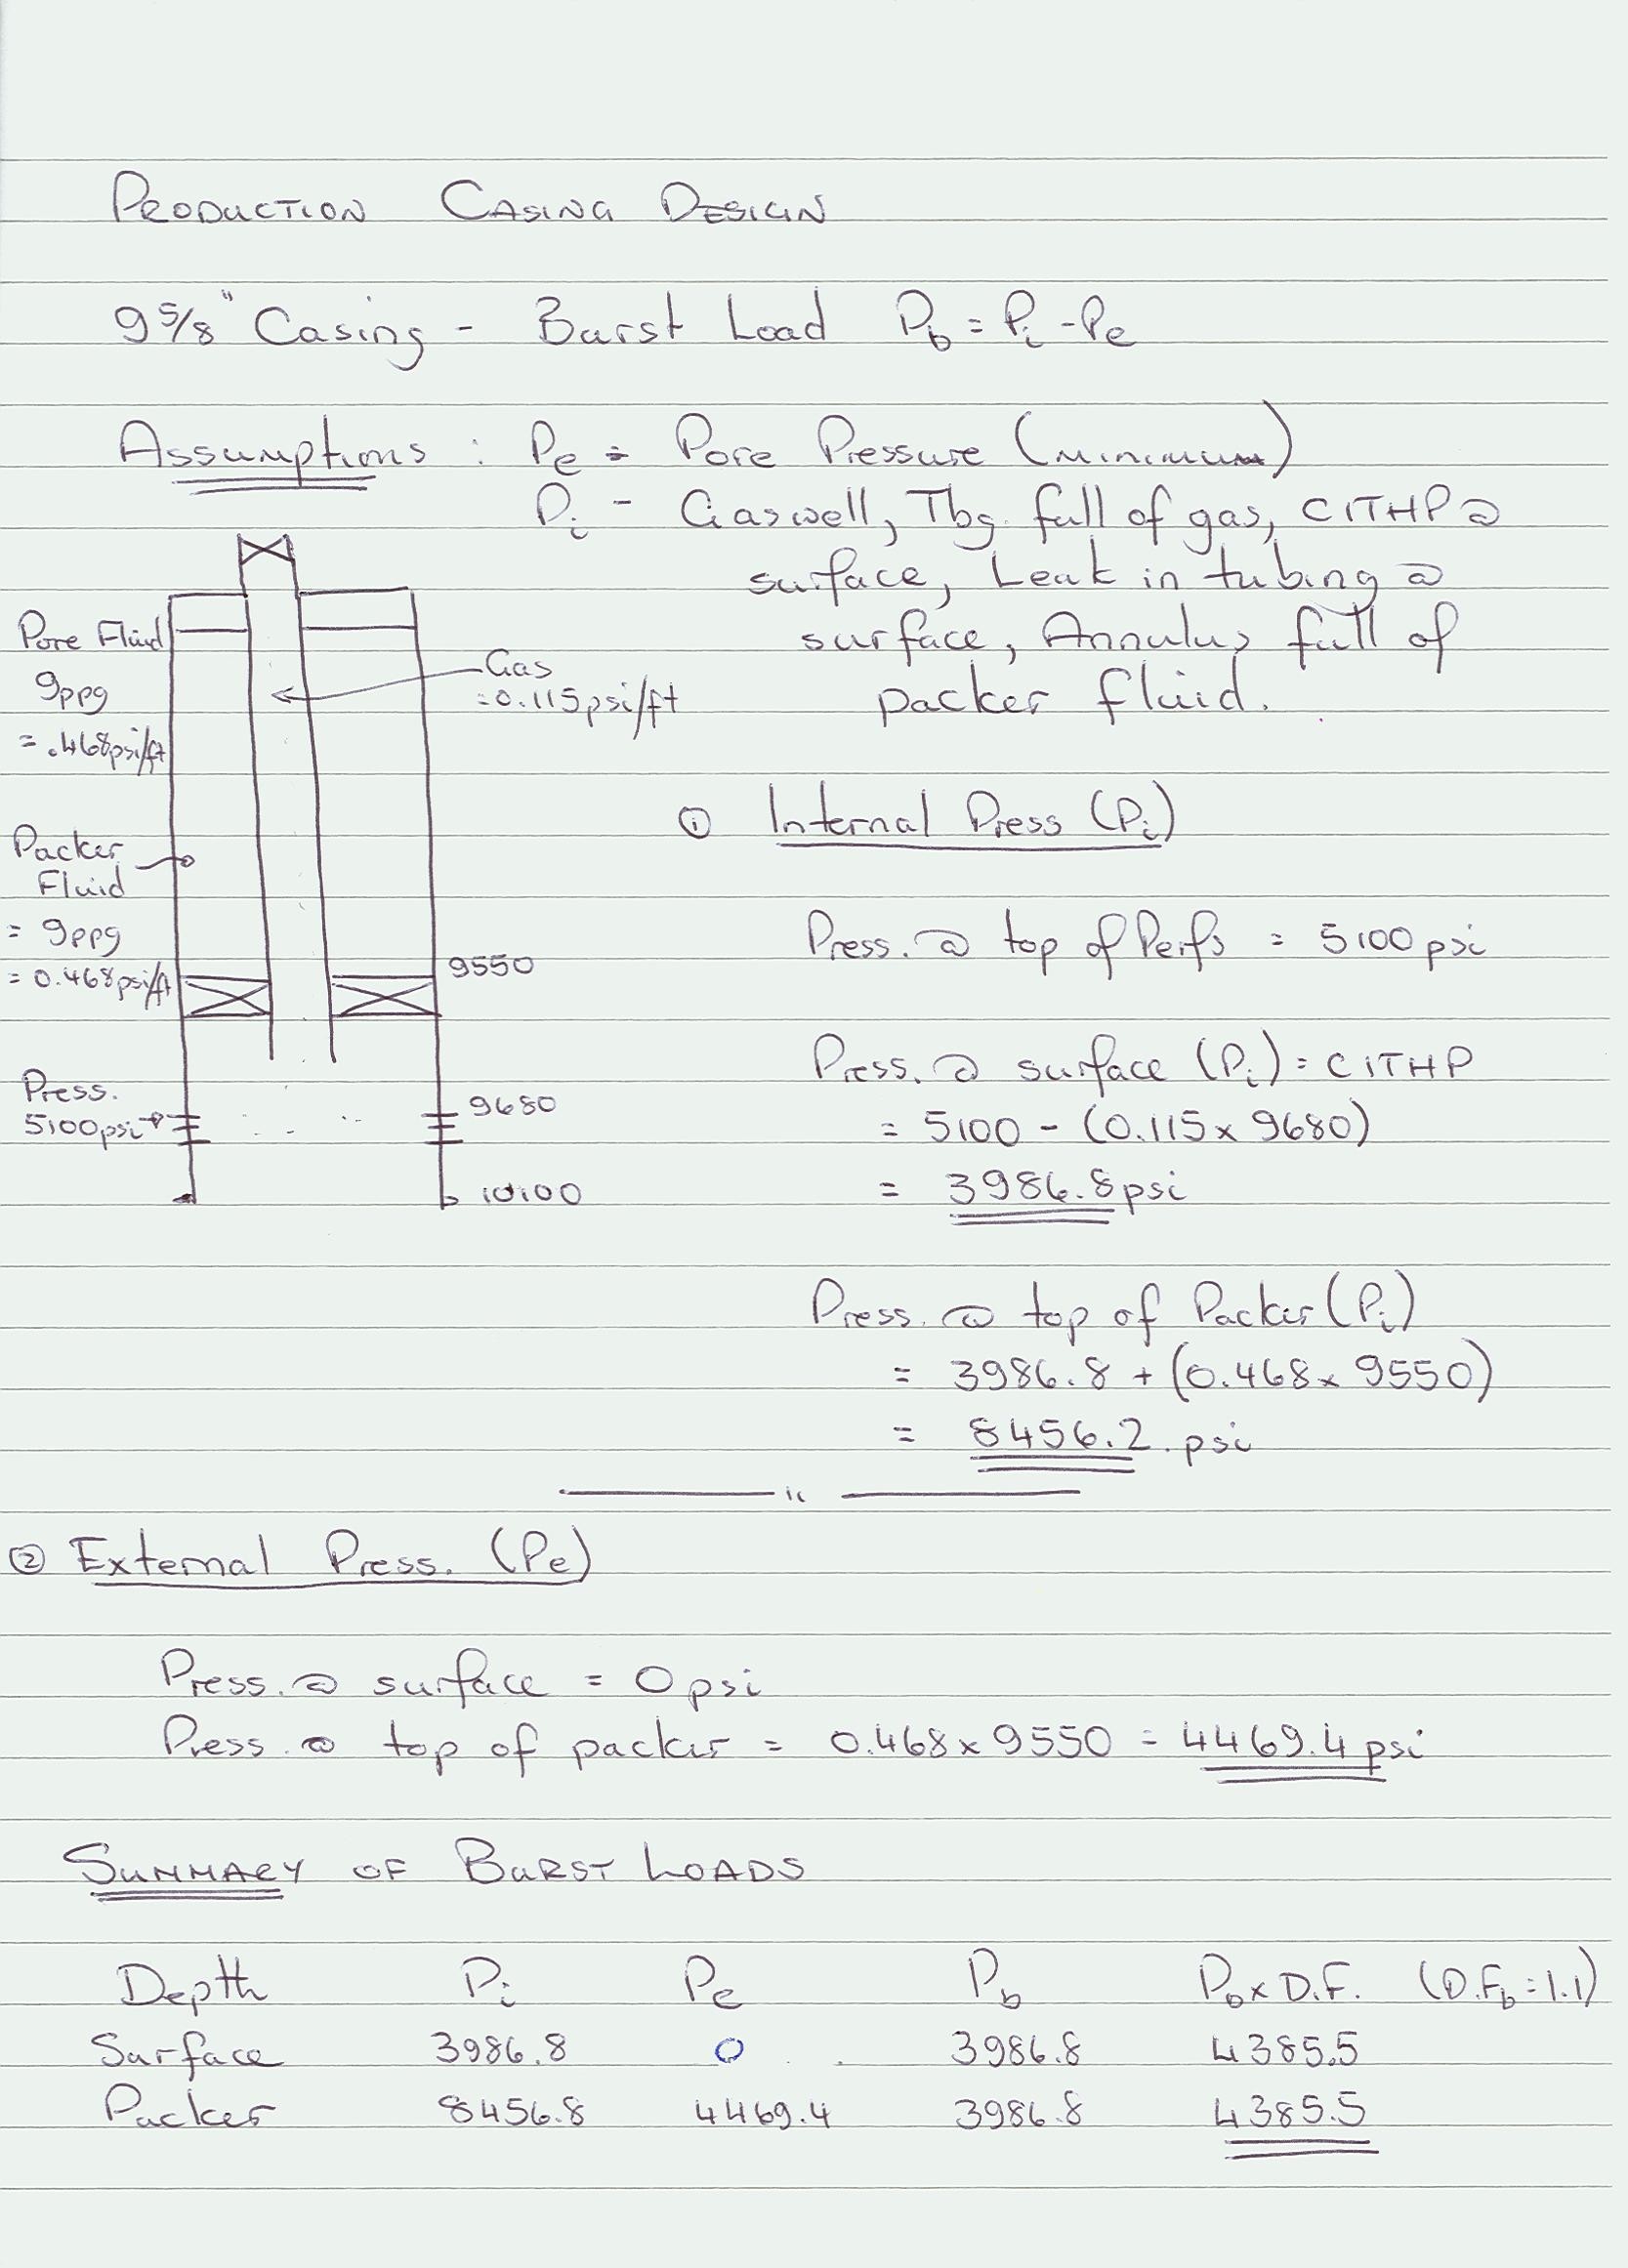 PRODUCTION CASING DESIGN
9 5/8" Casing - Burst Load Pb = Pi - Pe
Assumptions : Pe = Pore Pressure (minimum)
Pi - Gaswell, Tbg. full of gas, CITHP @
surface, Leak in tubing @
surface, Annulus full of
packer fluid.
Pore Fluid
9ppg
= .468psi/ft
Gas
=0.115psi/ft
Packer
Fluid
= 9ppg
= 0.468psi/ft
9550
Press.
5100psi
9680
10100
① Internal Press (Pi)
Press. @ top of Perfs = 5100psi
Press. @ surface (Pi) = CITHP
= 5100 - (0.115 x 9680)
= 3986.8psi
Press. @ top of Packer (Pi)
= 3986.8 + (0.468 x 9550)
= 8456.2. psi
② External Press. (Pe)
Press. @ surface = 0psi
Press. @ top of packer = 0.468 x 9550 = 4469.4 psi
SUMMARY OF BURST LOADS
Depth Pi Pe Pb Pb x D.F. (D.Fb = 1.1)
Surface 3986.8 0 3986.8 4385.5
Packer 8456.8 4469.4 3986.8 4385.5